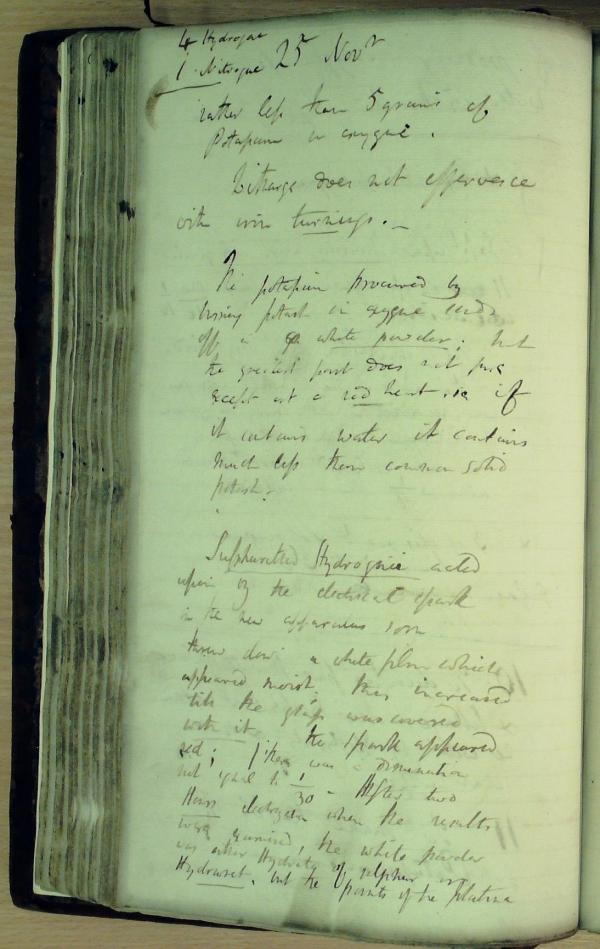 4 Hydrogne
1 Nitrogne 25 Novr
rather less than 5 grains of
Potassium in oxygne.
Litharge does not effervesce
with iron turnings. —
The potassium procured by
burning potash in oxygne sends
off a white powder; but
the greatest part does not fuse
except at a red heart. if
it contains water it contains
much less than common solid
potash.
Sulphuretted Hydrogne acted
upon by the electrical spark
in the new apparatus soon
threw down a white film which
appeared moist; this increased
till the glass was covered
with it the spark appeared
red; there was a diminution
not equal to 1/30 - After two
Hours electrizn when the results
were examined, the white powder
was either Hydrate of sulphur or
Hydruret, but the points of the Platina